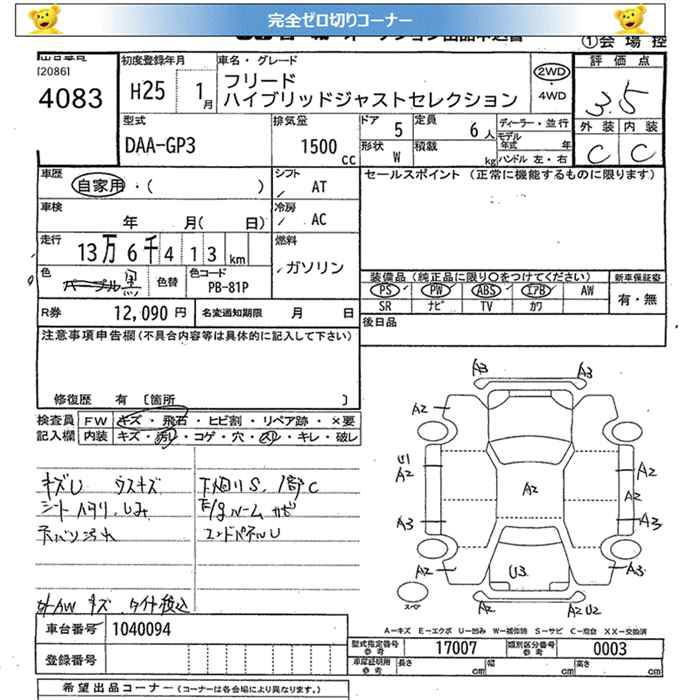 完全ゼロ切りコーナー
①会場控
[2086]
4083
初度登録年月
H25 1月
車名・グレード
フリード
ハイブリッドジャストセレクション
2WD
・4WD
評価点
3.5
外装 内装
C C
型式
DAA-GP3
排気量
1500 cc
ドア 5
定員 6人
形状 W
積載 kg
ディーラー・並行
モデル年式 年
ハンドル 左・右
車歴
自家用・( )
シフト
AT
セールスポイント (正常に機能するものに限ります)
車検
年 月( 日)
冷房
AC
走行
13万6千413km
燃料
ガソリン
色
パープル 黒
色替
色コード
PB-81P
装備品(純正品に限り〇をつけてください)
新車保証書
PS PW ABS エアB AW
SR ナビ TV カワ
有・無
R券 12,090円
名変通知期限 月 日
後日品
注意事項申告欄(不具合内容等は具体的に記入して下さい)
修復歴 有 [箇所 ]
検査員
記入欄
FW キズ・飛石・ヒビ割・リペア跡・×要
内装 キズ・汚れ・コゲ・穴・・キレ・破レ
キズU ウスキズ
シートヘタリ、しみ
天バリ汚れ
下廻りS、1部C
E/gルームサビ
エンドパネルU
外AW キズ
A3 A3
A2
U1
A2
A2
A2
A2
A3
A3
A2
U3
A2
A2
A2 U2
スペア
A-キズ E-エクボ U-凹み W-補修跡 S-サビ C-腐食 XX-交換済
車台番号 1040094
登録番号
型式指定番号
参考
17007
類別区分番号
参考
0003
車庫証明用
参考
長さ cm
幅 cm
高さ cm
希望出品コーナー (コーナーは各会場により異なります。)